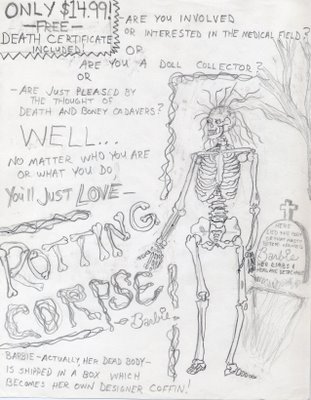 ONLY $14.99!
-FREE-
DEATH CERTIFICATE
INCLUDED
ARE YOU INVOLVED
OR INTERESTED IN THE MEDICAL FIELD?
OR
ARE YOU A DOLL COLLECTOR?
OR
-ARE JUST PLEASED BY
THE THOUGHT OF
DEATH AND BONEY CADAVERS?
WELL...
NO MATTER WHO YOU ARE
OR WHAT YOU DO,
YOU'LL JUST LOVE-
ROTTING
CORPSE
-Barbie-
BARBIE-ACTUALLY, HER DEAD BODY-
IS SHIPPED IN A BOX WHICH
BECOMES HER OWN DESIGNER COFFIN!
HERE
LIES THE
Barbie
HER LIMBS &
HEAD ARE